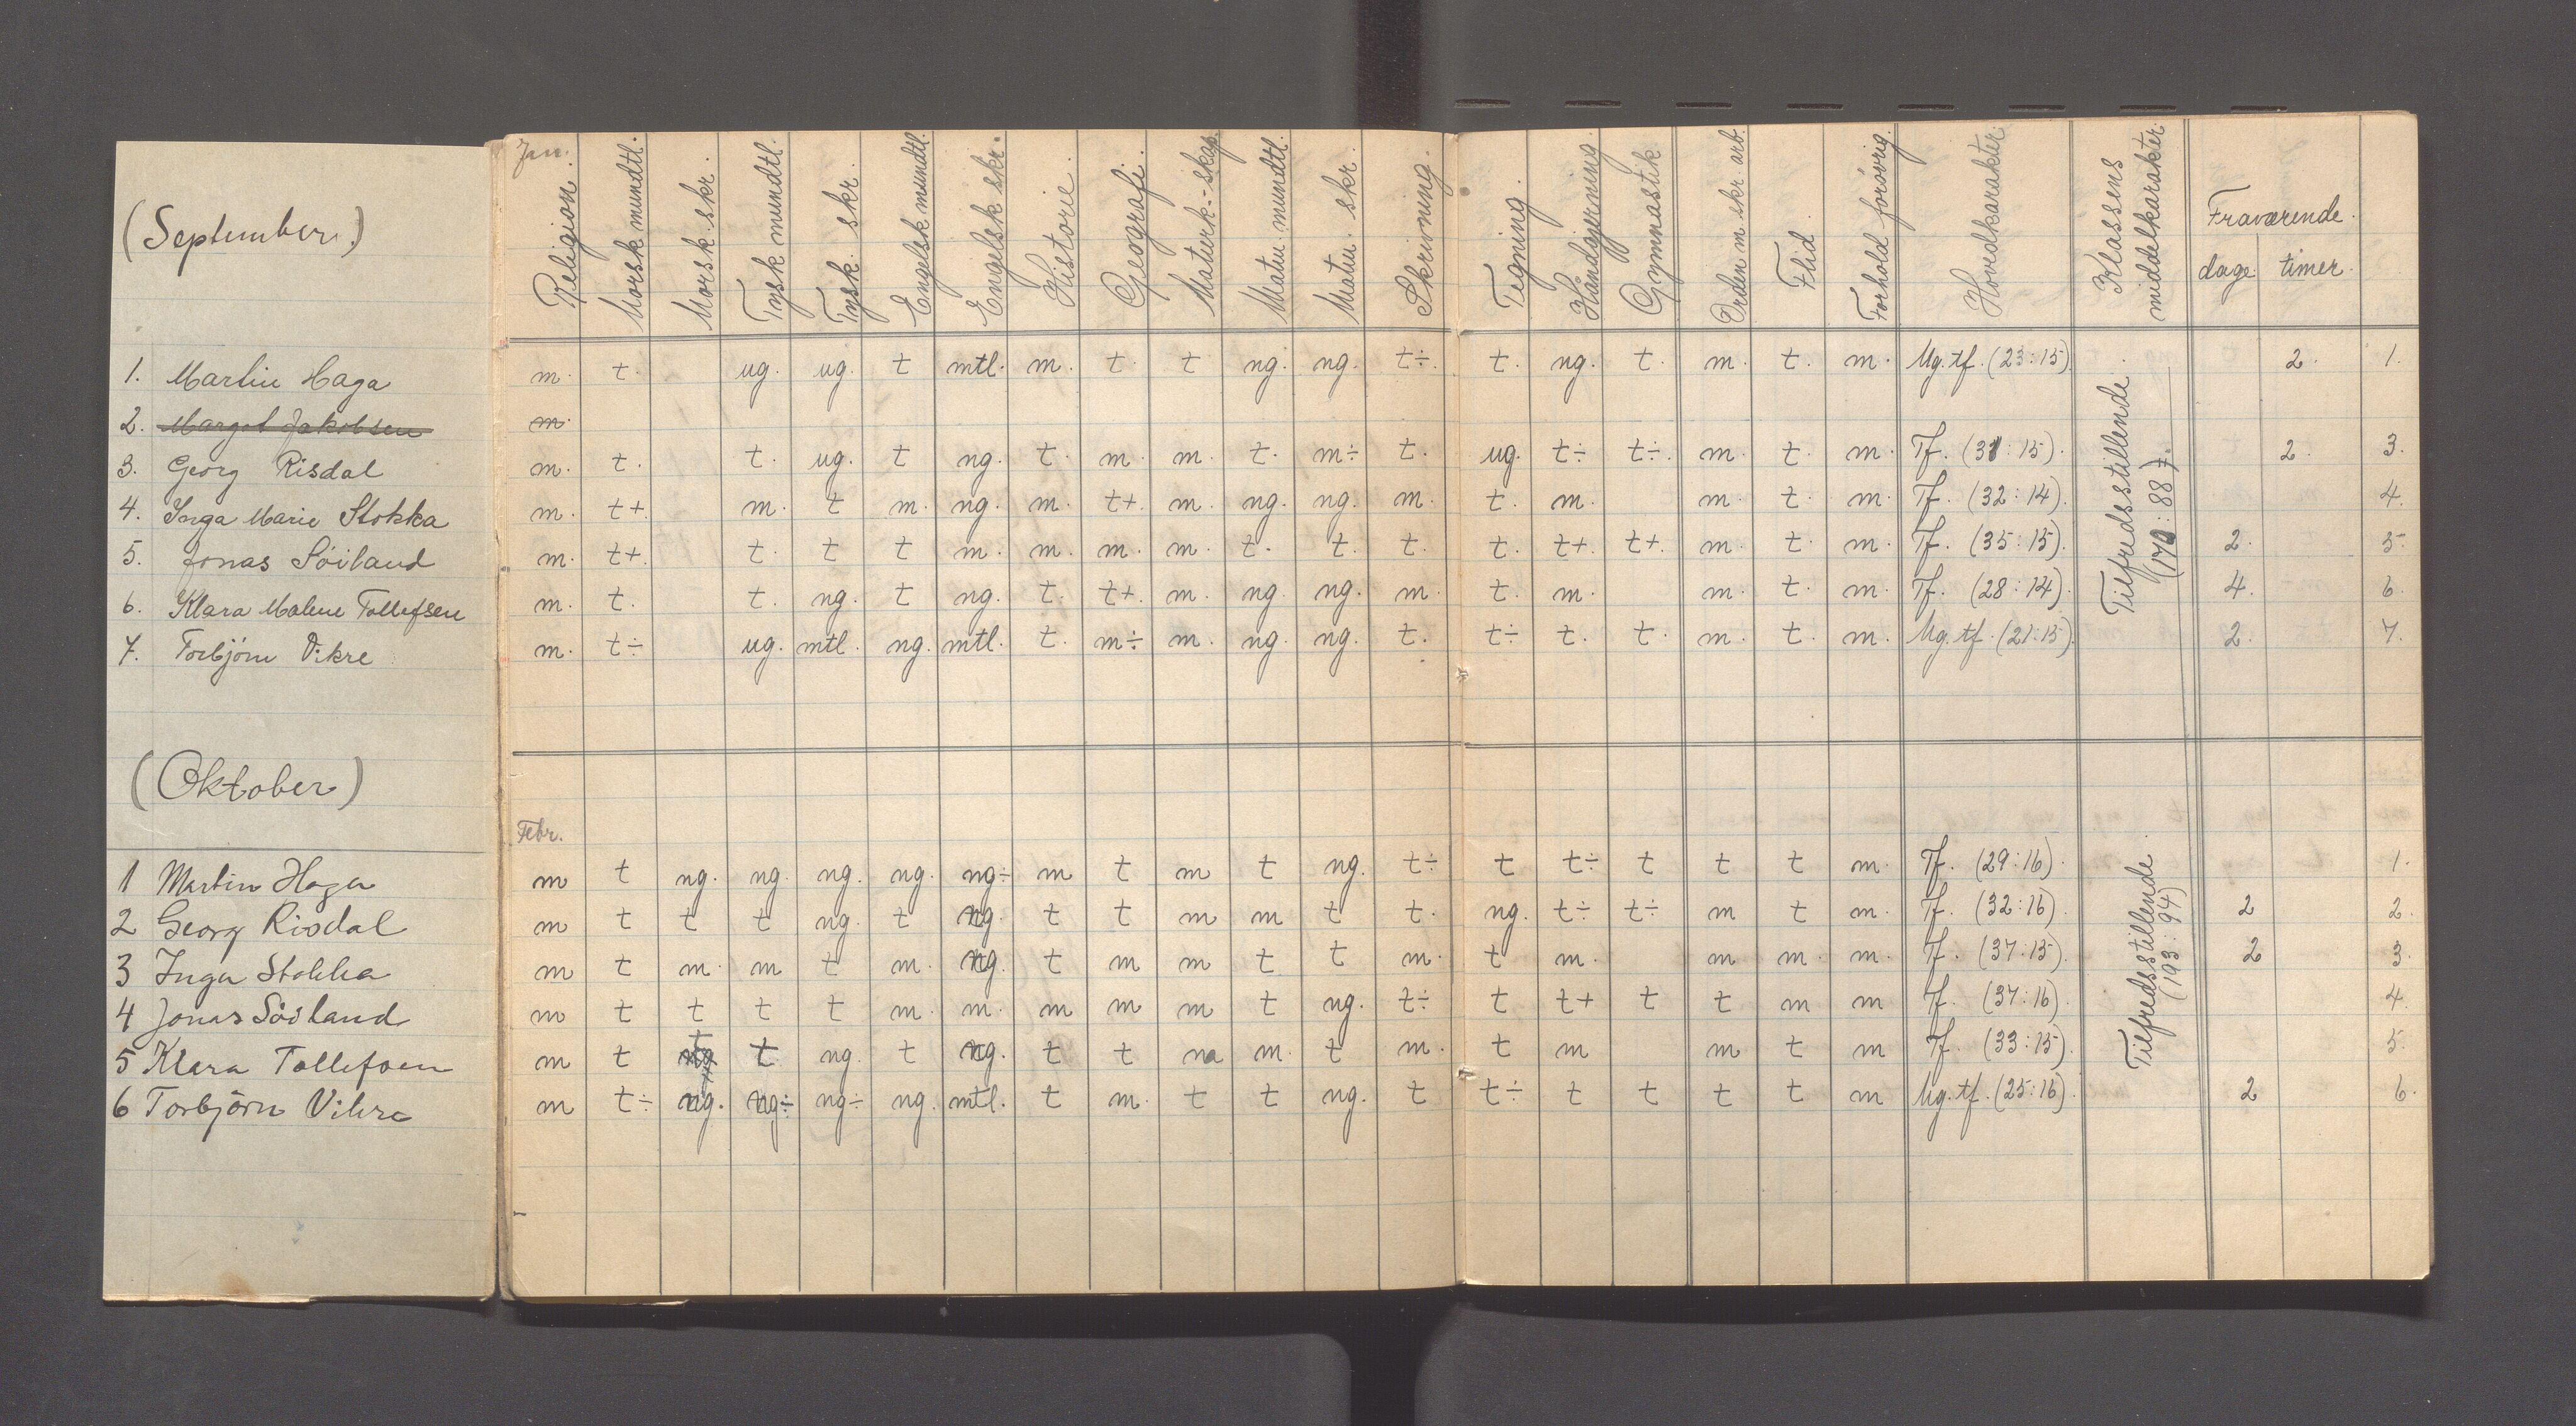 (September.)
Jan.
Religion. Norsk mundtl. Norsk skr. Tysk mundtl. Tysk skr. Engelsk mundtl. Engelsk skr. Historie. Geografi. Naturk.-skap. Matem mundtl. Matem. skr. Skrivning. Tegning. Håndgjerning. Gymnastik Orden m skr. arb. Flid. Forhold forøvrig. Hovedkarakter. Klassens middelkarakter. Fraværende. dage. timer.
1. Martin Haga m. t. ug. ug. t mtl. m. t. t ng. ng. t÷. t. ng. t. m. t. m. Ng. tf. (23:15). 2. 1.
2. Margot Jakobsen m.
3. Georg Risdal m. t. t. ug. t ng. t. m. m. t. m÷ t. ug. t÷ t÷. m. t. m. Tf. (31:15). 2. 3.
4. Inga Marie Stokka m. t+. m. t m. ng. m. t+. m. ng. ng. m. t. m. m. t. m. Tf. (32:14). 4.
5. Jonas Söiland m. t+. t. t t m. m. m. m. t. t. t. t. t+. t+. m. t. m. Tf. (35:15). 2. 5.
6. Klara Malene Tollefsen m. t. t. ng. t ng. t. t+. m. ng. ng. m. t. m. m. t. m. Tf. (28:14). 4. 6.
7. Torbjörn Vikre m. t÷ ug. mtl. ng. mtl. t. m÷ m. ng. ng. t. t÷ t. t. m. t. m. Ng. tf. (21:15). 2. 7.
Tilfredsstillende.
(170:88).
(Oktober)
Febr.
1 Martin Haga m t ng. ng. ng. ng. ng÷ m t m t ng. t÷ t t÷ t t t m. Tf. (29:16). 1.
2 Georg Risdal m t t t ng. t ng. t t m m t t. ng. t÷ t÷ m t m. Tf. (32:16). 2 2.
3 Inga Stokka m t m. m t m. ng. t m m t t m. t m. m m. m. Tf. (37:15). 2 3.
4 Jonas Söiland m t t t t m. m. m m m t ng. t÷ t t+ t t m m Tf. (37:16). 4.
5 Klara Tollefsen m t t t ng. t ng. t t m. t m. t m m t m Tf. (33:15). 5.
6 Torbjörn Vikre m t÷ ng. ng÷ ng÷ ng. mtl. t m. t t ng. t t÷ t t t t m Ng. tf. (25:16). 2 6.
Tilfredsstillende
(193:94)